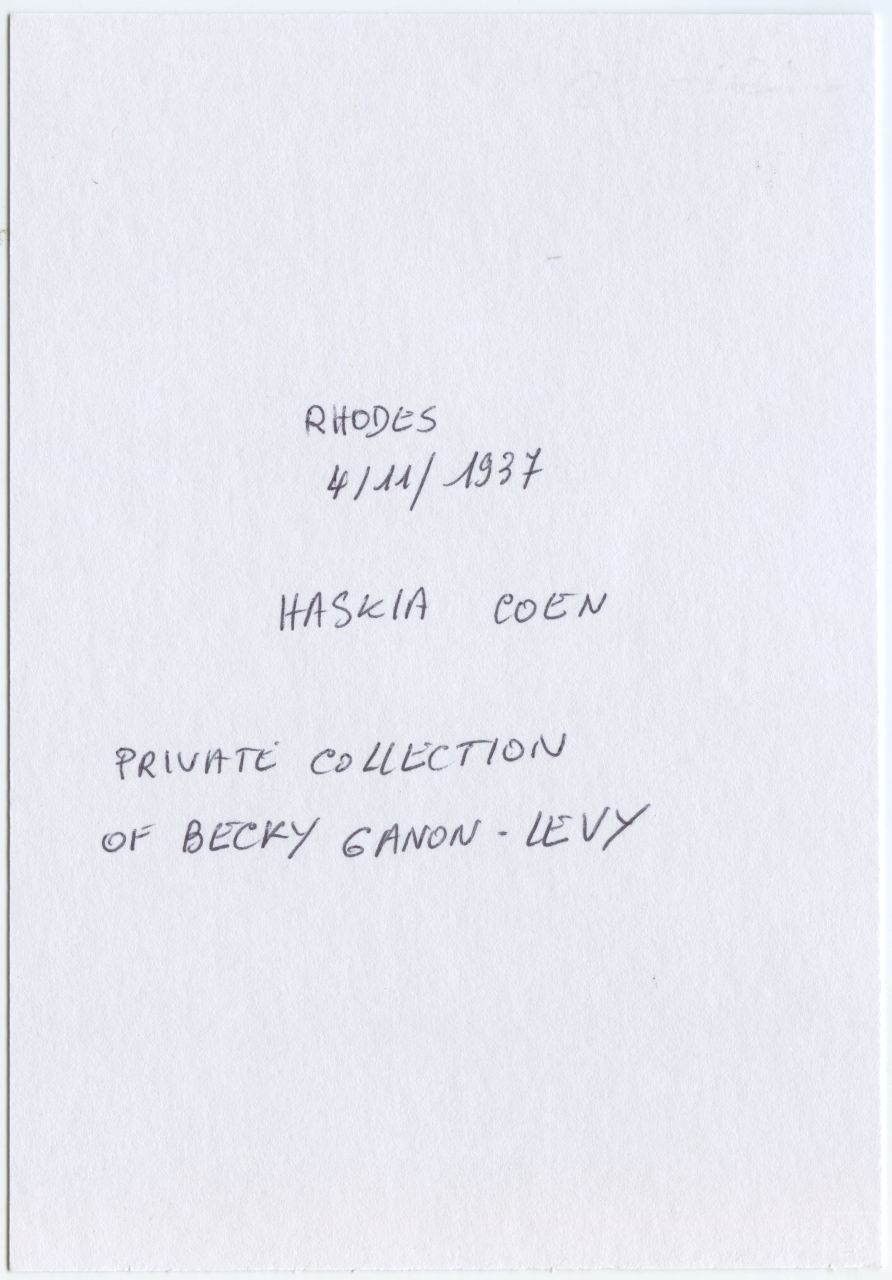 RHODES
4/11/1937
HASKIA COEN
PRIVATE COLLECTION
OF BECKY GANON - LEVY